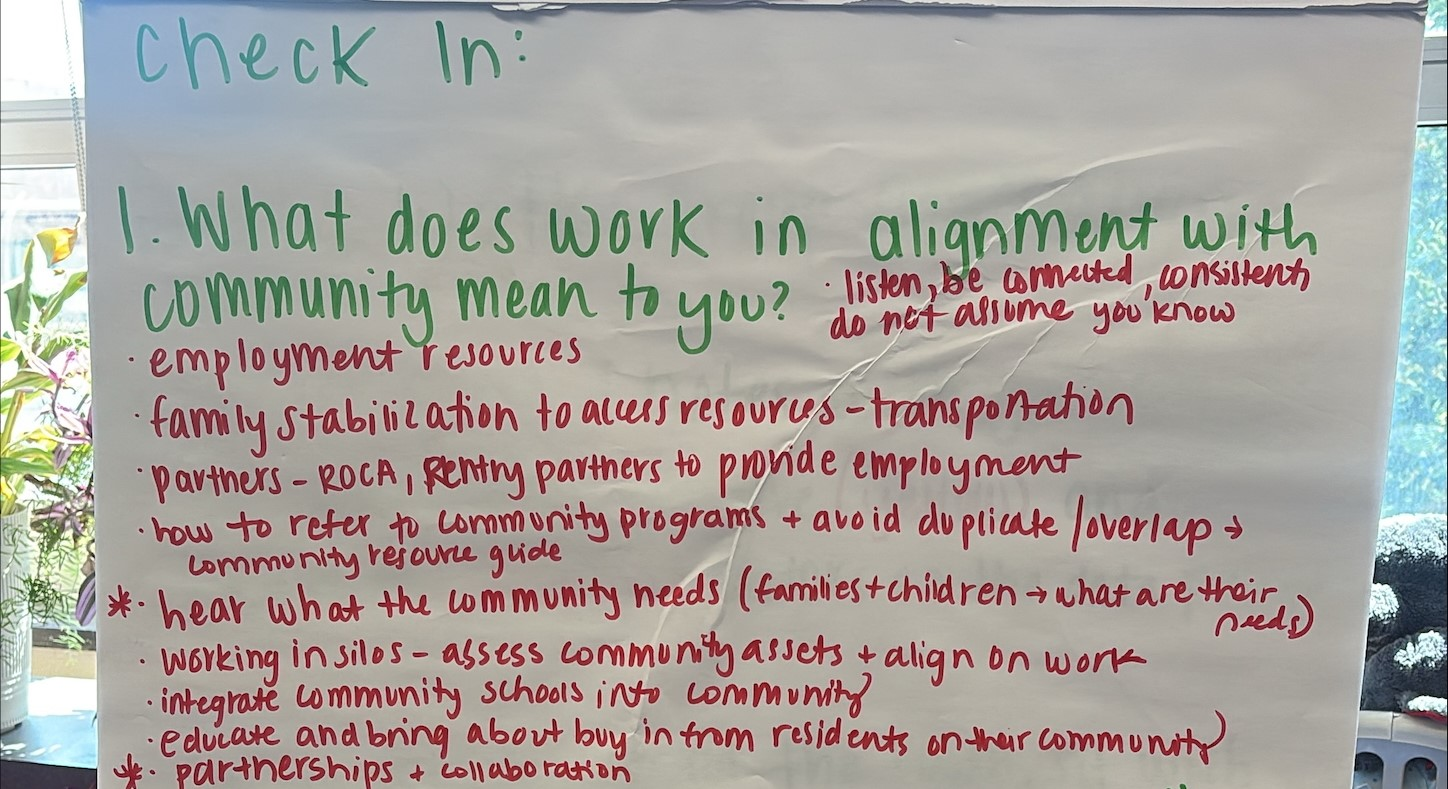 Check In:
1. What does work in alignment with
community mean to you?
· listen, be connected, consistent,
do not assume you know
· employment resources
· family stabilization to access resources - transportation
· partners - ROCA, Rentry partners to provide employment
· how to refer to community programs + avoid duplicate / overlap →
community resource guide
*· hear what the community needs (families + children → what are their
needs)
· working in silos - assess community assets + align on work
· integrate community schools into community
· educate and bring about buy in from residents on their community
*· partnerships + collaboration